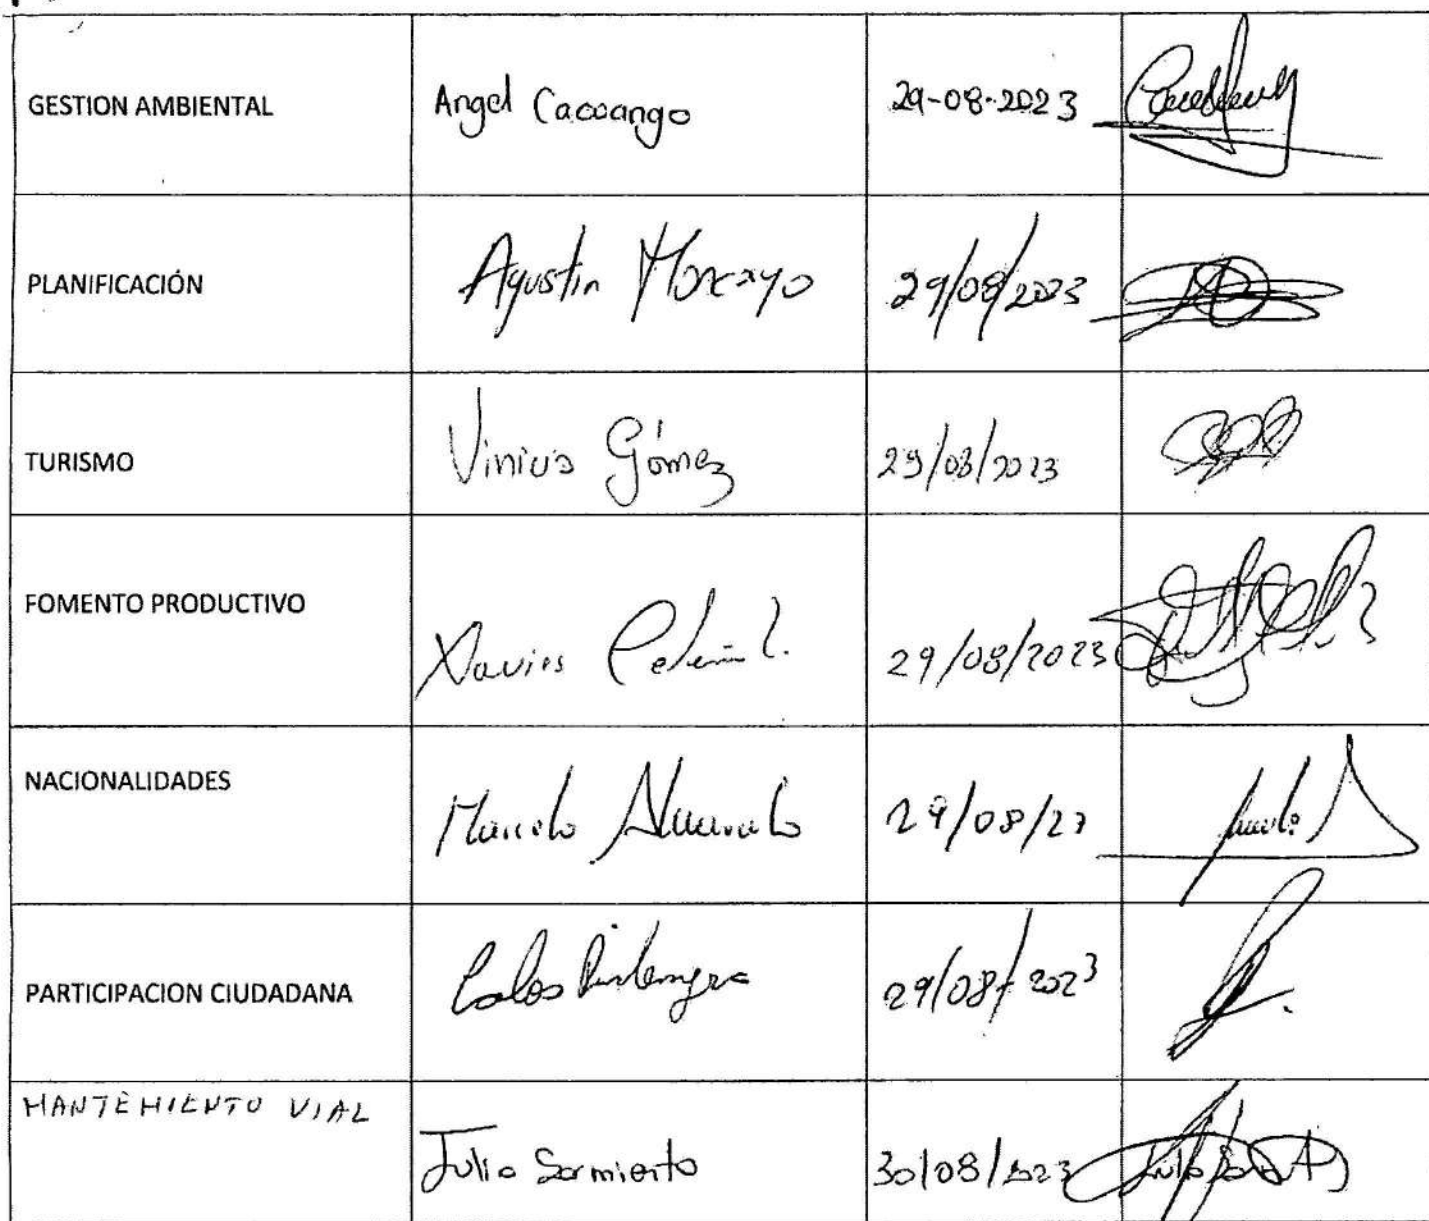 GESTION AMBIENTAL Angel Caccango 29-08-2023
PLANIFICACIÓN Agustin Moncayo 29/08/2023
TURISMO Vinicio Gómez 29/08/2023
FOMENTO PRODUCTIVO
Xavier 29/08/2023
NACIONALIDADES
Marcelo 29/08/23
PARTICIPACION CIUDADANA Carlos 29/08/2023
MANTEMIENTO VIAL
Julio Sarmiento 30/08/2023